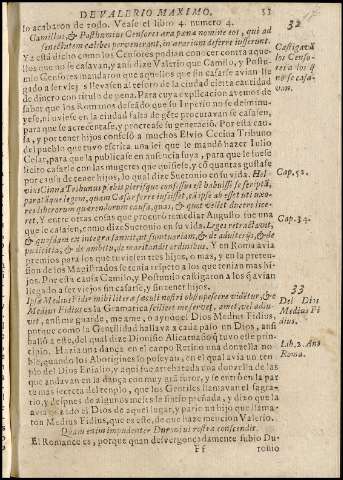 DE VALERIO MAXIMO. 53
lo acabaron de todo. Vease el libro 4. numero 4.
Camillus, & Posthumius Censores æra pœnæ nomine eos, qui ad
senectutem cælibes pervenerant, in ærarium deferre iusserunt.
Ya està dicho como los Censores podian conocer contra aque-
llos que no se casavan, y assi dize Valerio que Camilo, y Postu-
nio Censores mandaron que aquellos que sin casarse avian lle-
gado a ser viejos llevassen al tesoro de la ciudad cierta cantidad
de dinero con titulo de pena. Para cuya explicacion avemos de
saber que los Romanos deseado que su Imperio no se diminu-
yesse, ni uviesse en la ciudad falta de gẽte procuravan se casassen,
para que se acrecentasse, y creciesse su generaciō. Por esta cau-
sa, y por tener hijos confessò a muchos Elvio Ccina Tribuno
del pueblo que tuvo escrita una lei que le mandò hazer Iulio
Cesar, para que la publicasse en ausencia suya, para que le fuesse
licito casarse con las mugeres que quisiesse, y cō quantas gustasse
por causa de tener hijos, lo qual dize Suetonio en su vida. Hel-
vius Cinna Tribunus plebis plerisque confessus est habuisse se scriptā,
paratāque legem, quam Cæsar ferre iussisset, cū ipse abesset uti uxo-
res liberorum quærendorum causa, quas, & quot vellet ducere lice-
ret. Y entre otras cosas que procurò remediar Augusto fue una
que se casassen, como dize Suetonio en su vida. Leges retractavit,
& quasdam ex integro sanxit, ut sumtuariam, & de adulterijs, & de
pudicitia, & de ambitu, de maritandis ordinibus. Y en Roma avia
premios para los que tuviessen tres hijos, o mas, y en la preten-
sion de los Magistrados se tenia respeto a los que tenian mas hi-
jos. Por esta causa Camilo, y Postumio castigaron a los q̄ avian
llegado a ser viejos sin casarse, y sin tener hijos.
Ipse Medius Fidius mihi litera sæculi nostri obstupescere videtur, &c
Medius Fidius es la Gramatica
vit, assi me guarde, me ame, o ayude el Dios Medius Fidius,
porque como la Gentilidad hallava a cada passo un Dios, assi
hallò a este, del qual dize Dionisio Alicarnaseo q̄ tuvo este prin-
cipio. Hazia una dança en el campo Retino una donzella no-
ble, quando los Aborigines lo poseyan, en el qual avia un tem-
plo del Dios Enialio, y aqui fue arrebatada una donzella de las
que andavan en la dança con muy grā furor, y se entrò en la par
te mas secreta del templo, que los Gentiles llamavan el sagra-
rio, y despues de algunos meses se sintio preñada, y dizo que la
avia gozado el Dios de aquel lugar, y pario un hijo que llama-
ron Medius Fidius, que es este, de que haze mencion Valerio.
Quam enim impudenter Duronius rostra conscendit.
El Romance es, porque quan desvergonçadamente subio Du-
Ff ronio
32
Castigavā
los Censo-
res a los q̄
no se casa-
van.
Cap. 52.
Cap. 34.
33
Del Dios
Medius Fi
dius.
Lib. 2. Ant.
Roma.